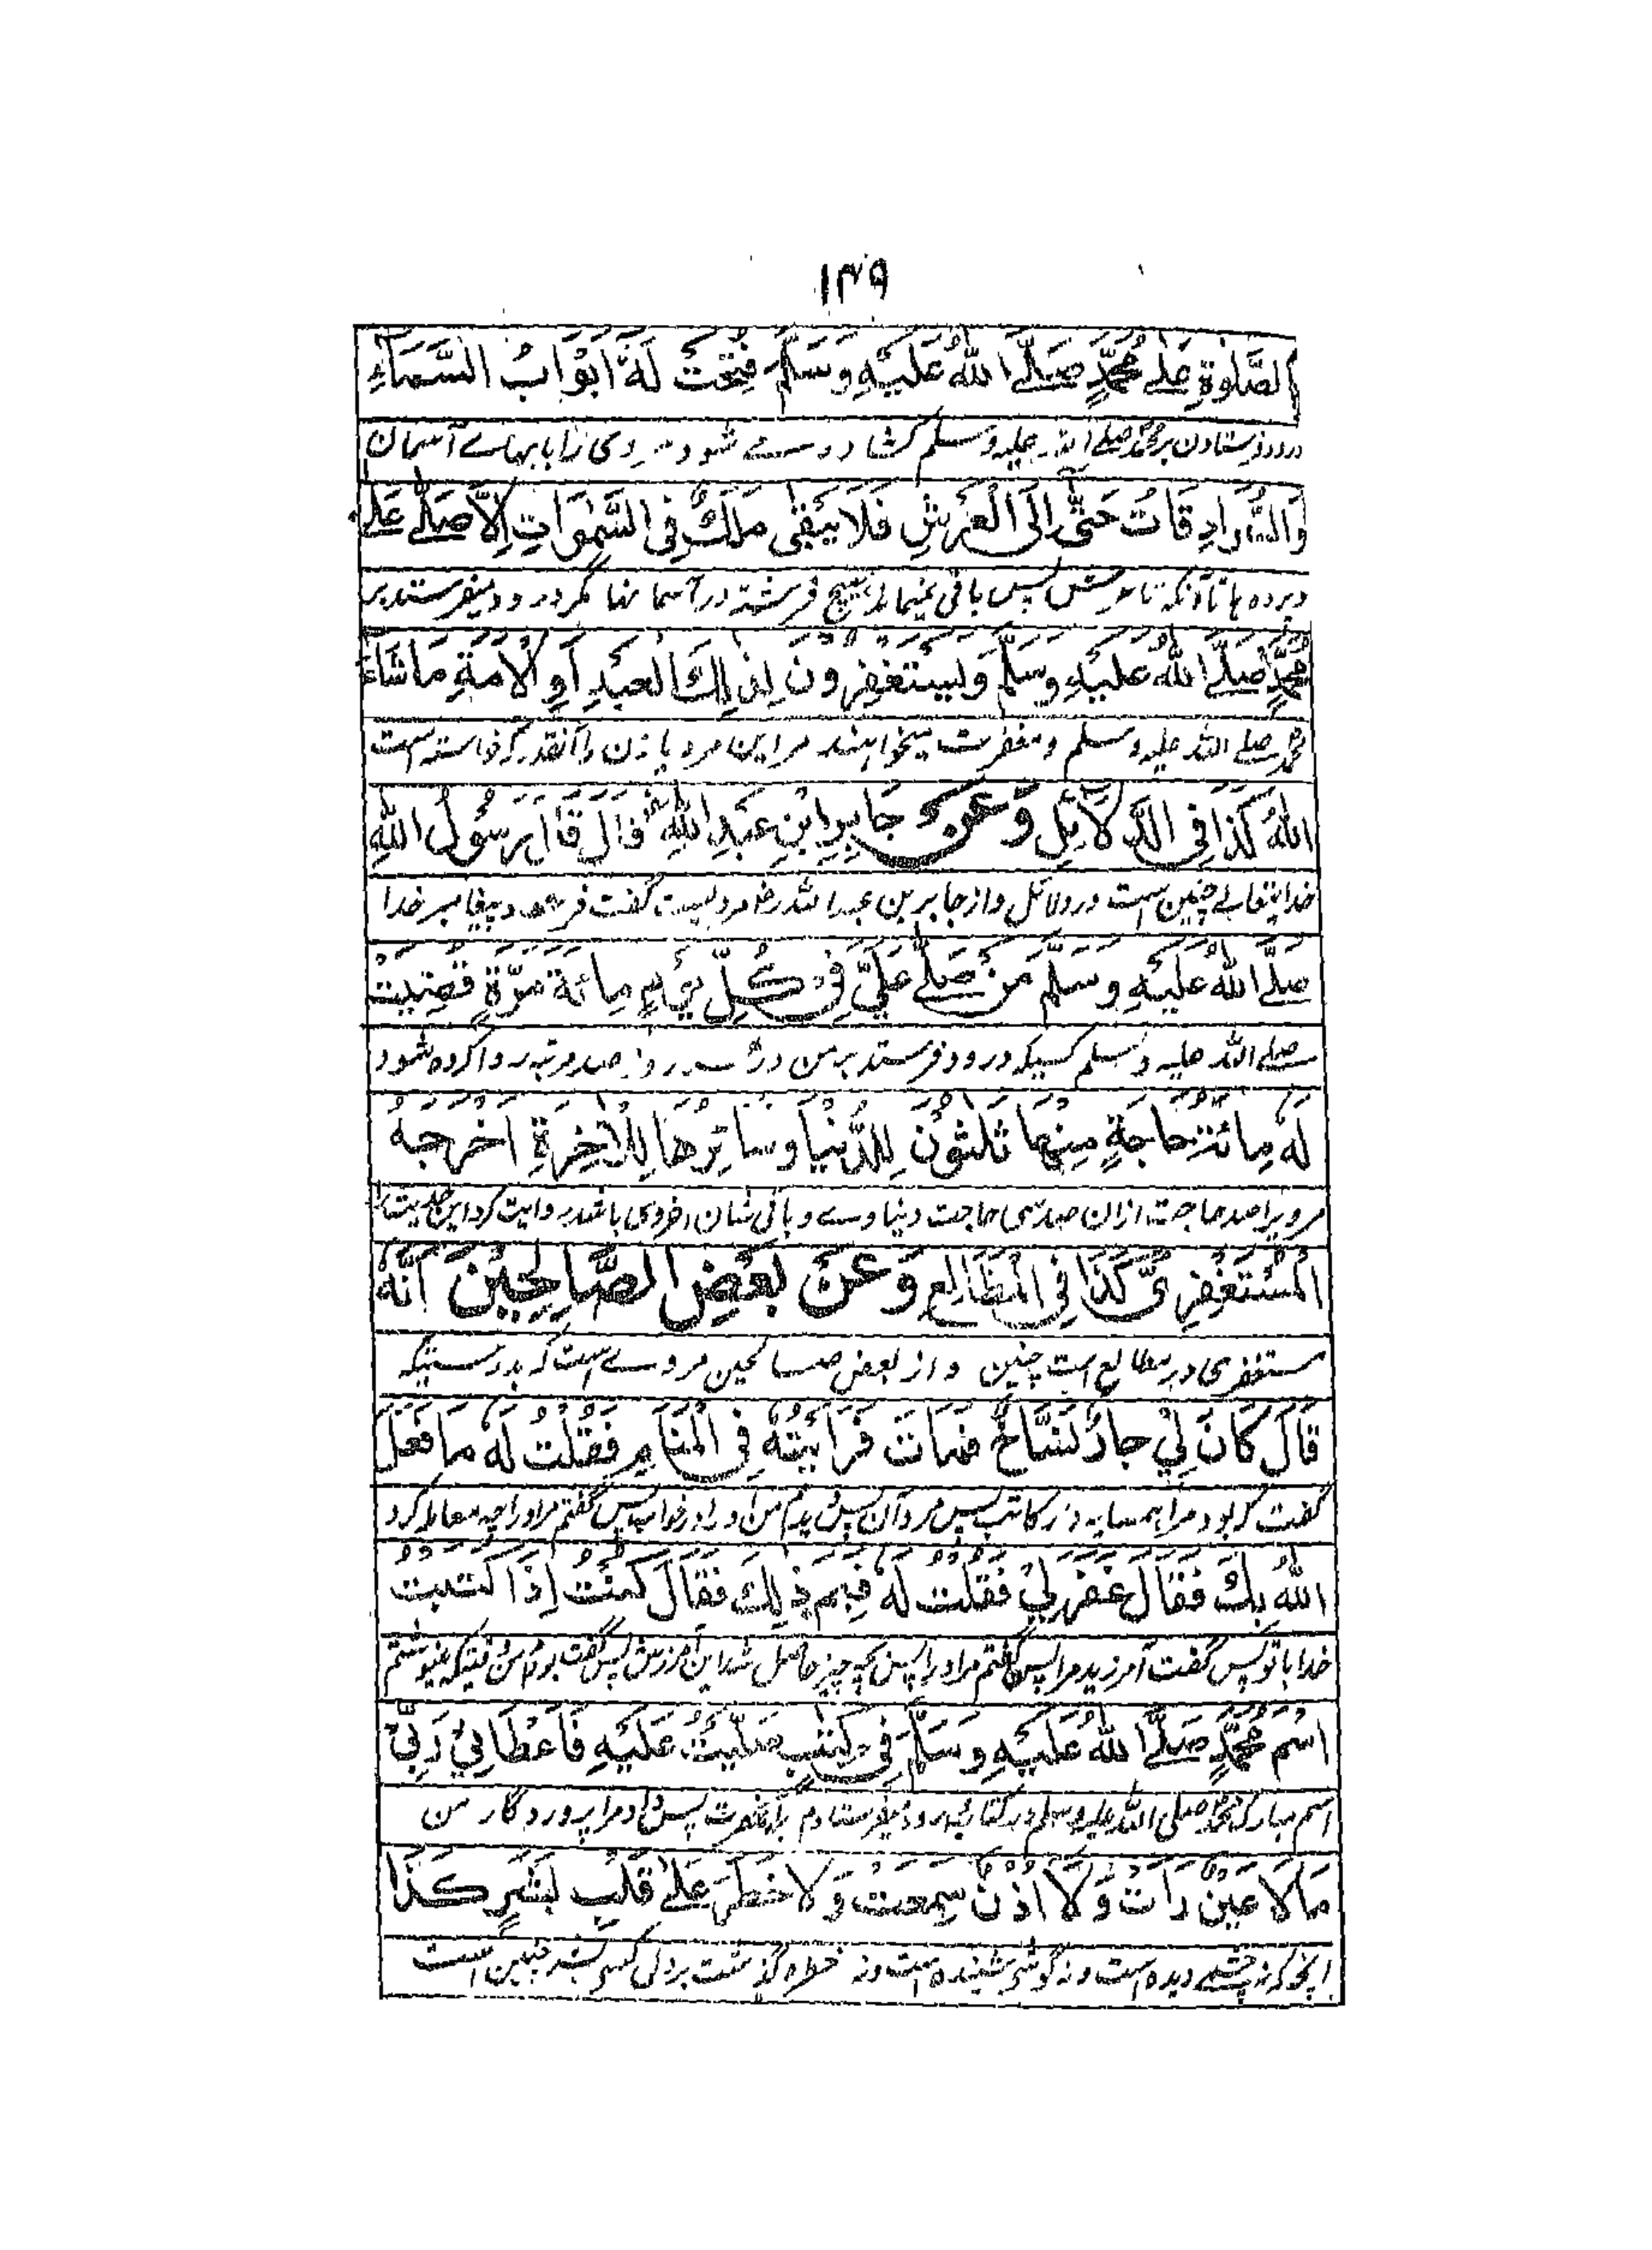 ١٣٩
الصَّلٰوةِ عَلٰے مُحَمَّدٍ صَلَّے اللّٰهُ عَلَيْهِ وَسَلَّمَ فُتِحَتْ لَهُ اَبْوَابُ السَّمَآءِ
درود فرستادن بر محمد صلے اللہ علیہ وسلم کشادہ مے شود وی را بابہاے آسمان
وَالسُّرَادِقَاتُ حَتّٰى اِلَى الْعَرْشِ فَلَا يَبْقٰى مَلَكٌ فِى السَّمٰوَاتِ اِلَّا صَلّٰے عَلٰے
وپردہ ہا تا آنکہ تا عرش پس باقی نمیماند ہیچ فرشتہ در آسمانہا مگر درود میفرستد بر
مُحَمَّدٍ صَلَّے اللّٰهُ عَلَيْهِ وَسَلَّمَ وَيَسْتَغْفِرُوْنَ لِذٰلِكَ الْعَبْدِ اَوِ الْاَمَةِ مَا شَآءَ
محمد صلے اللہ علیہ وسلم ومغفرت میخواہند مر این مرد یا زن را آنقدر کہ خواستہ است
اللّٰهُ كَذَا فِى الدَّلَائِلِ وَعَنْ جَابِرِ ابْنِ عَبْدِ اللّٰهِ قَالَ قَالَ رَسُوْلُ اللّٰهِ
خدایتعالے چنین است در دلائل واز جابر بن عبد اللہ رض مرویست گفت فرمود پیغامبر خدا
صَلَّے اللّٰهُ عَلَيْهِ وَسَلَّمَ مَنْ صَلّٰے عَلَيَّ فِىْ كُلِّ يَوْمٍ مِائَةَ مَرَّةٍ قُضِيَتْ
صلے اللہ علیہ وسلم کسیکہ درود فرستد بر من در روز صد مرتبہ روا کردہ شود
لَهُ مِائَةُ حَاجَةٍ مِنْهَا ثَلٰثُوْنَ لِلدُّنْيَا وَسَائِرُهَا لِلْاٰخِرَةِ اَخْرَجَهُ
مر ویرا صد حاجت ازان صد سی حاجت دنیاوے وباقی شان اخروی باشد روایت کرد این حدیث را
الْمُسْتَغْفِرِىُّ كَذَا فِى الْمَطَالِعِ وَعَنْ بَعْضِ الصَّالِحِيْنَ اَنَّهُ
مستغفری در مطالع است چنین واز بعض صالحین مروے است کہ بدرستیکہ
قَالَ كَانَ لِيْ جَارٌ نَسَّاخٌ فَمَاتَ فَرَاَيْتُهُ فِى الْمَنَامِ فَقُلْتُ لَهُ مَا فَعَلَ
گفت کہ بود مرا ہمسایہ کاتب پس مرد آن پس دیدم من او را در خواب پس گفتم مر او را چہ معاملہ کرد
اللّٰهُ بِكَ فَقَالَ غَفَرَ لِيْ فَقُلْتُ لَهُ فَبِمَ ذٰلِكَ فَقَالَ كُنْتُ اِذَا كَتَبْتُ
خدا با تو پس گفت آمرزید مرا پس گفتم مر او را پس بچہ چیز حاصل شد این آمرزش پس گفت بودم من وقتیکہ مینوشتم
اسْمَ مُحَمَّدٍ صَلَّے اللّٰهُ عَلَيْهِ وَسَلَّمَ فِى كِتَابٍ صَلَّيْتُ عَلَيْهِ فَاَعْطَانِيْ رَبِّيْ
اسم مبارک محمد صلی اللہ علیہ وسلم در کتابے درود میفرستادم بر آنحضرت پس داد مرا پروردگار من
مَا لَا عَيْنٌ رَاَتْ وَّلَا اُذُنٌ سَمِعَتْ وَّلَا خَطَرَ عَلٰے قَلْبِ بَشَرٍ كَذَا
انچہ کہ نہ چشمے دیدہ است ونہ گوش شنیدہ است ونہ خطرہ گذشت بر دل کسے بشر چنین است